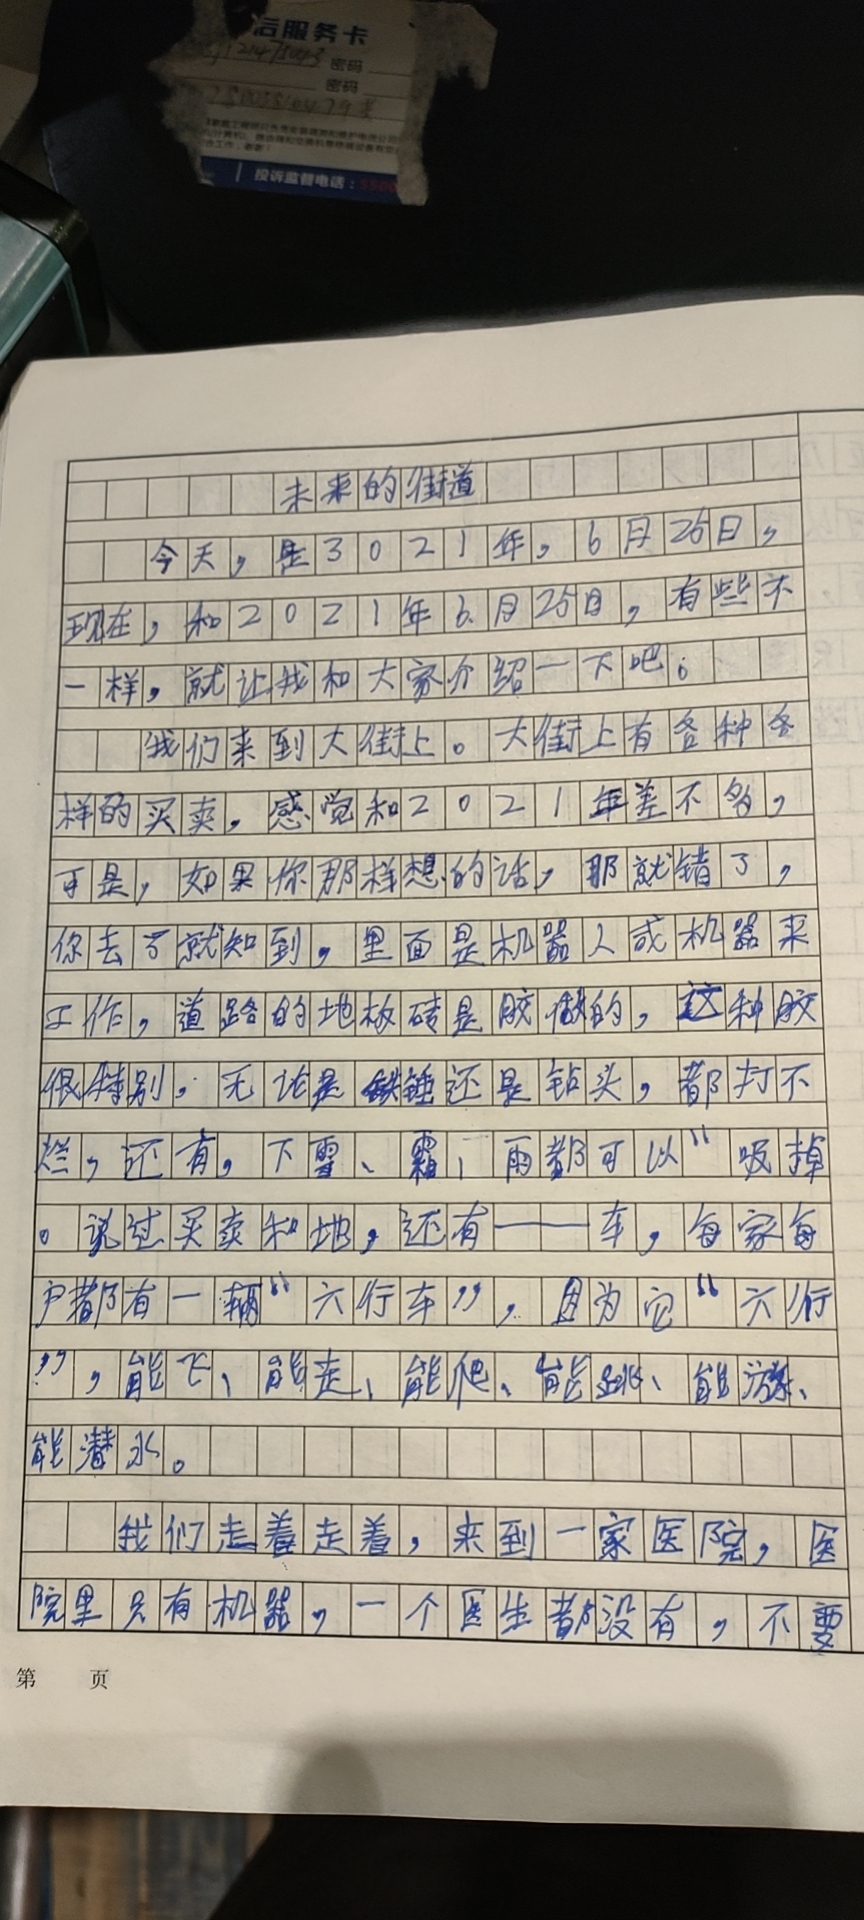 后服务卡
密码
密码
投诉监督电话:5500
未来的街道
今天,是3021年,6月26日,
现在,和2021年6.月25日,有些不
一样,就让我和大家介绍一下吧。
我们来到大街上。大街上有各种各
样的买卖,感觉和2021年差不多,
可是,如果你那样想的话,那就错了,
你去了就知到,里面是机器人或机器来
工作,道路的地板砖是胶做的,这种胶
很特别,无论是铁锤还是钻头,都打不
烂,还有,下雪、霜、雨都可以“吸掉
。说过买卖和地,还有——车,每家每
户都有一辆“六行车”,因为它“六行
”,能飞、能走、能爬、能跳、能游、
能潜水。
我们走着走着,来到一家医院,医
院里只有机器,一个医生都没有,不要
第 页